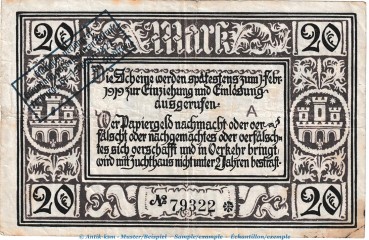 20 Mark 20
Die Scheine werden spätestens zum 1. Febr.
1919 zur Einziehung und Einlösung
aufgerufen.
A
Wer Papiergeld nachmacht oder ver-
fälscht oder nachgemachtes oder verfälsch-
tes sich verschafft und in Verkehr bringt
wird mit Zuchthaus nicht unter 2 Jahren bestraft.
20 № 79322 20
© Antik-kom - Muster/Beispiel - Sample/exemple - Échantillon/exemple